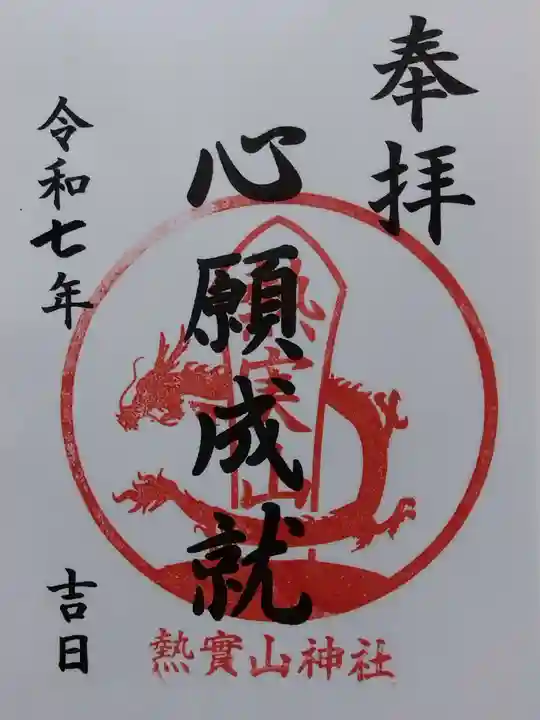 奉拝
心願成就
熱実山
令和七年
吉日
熱實山神社